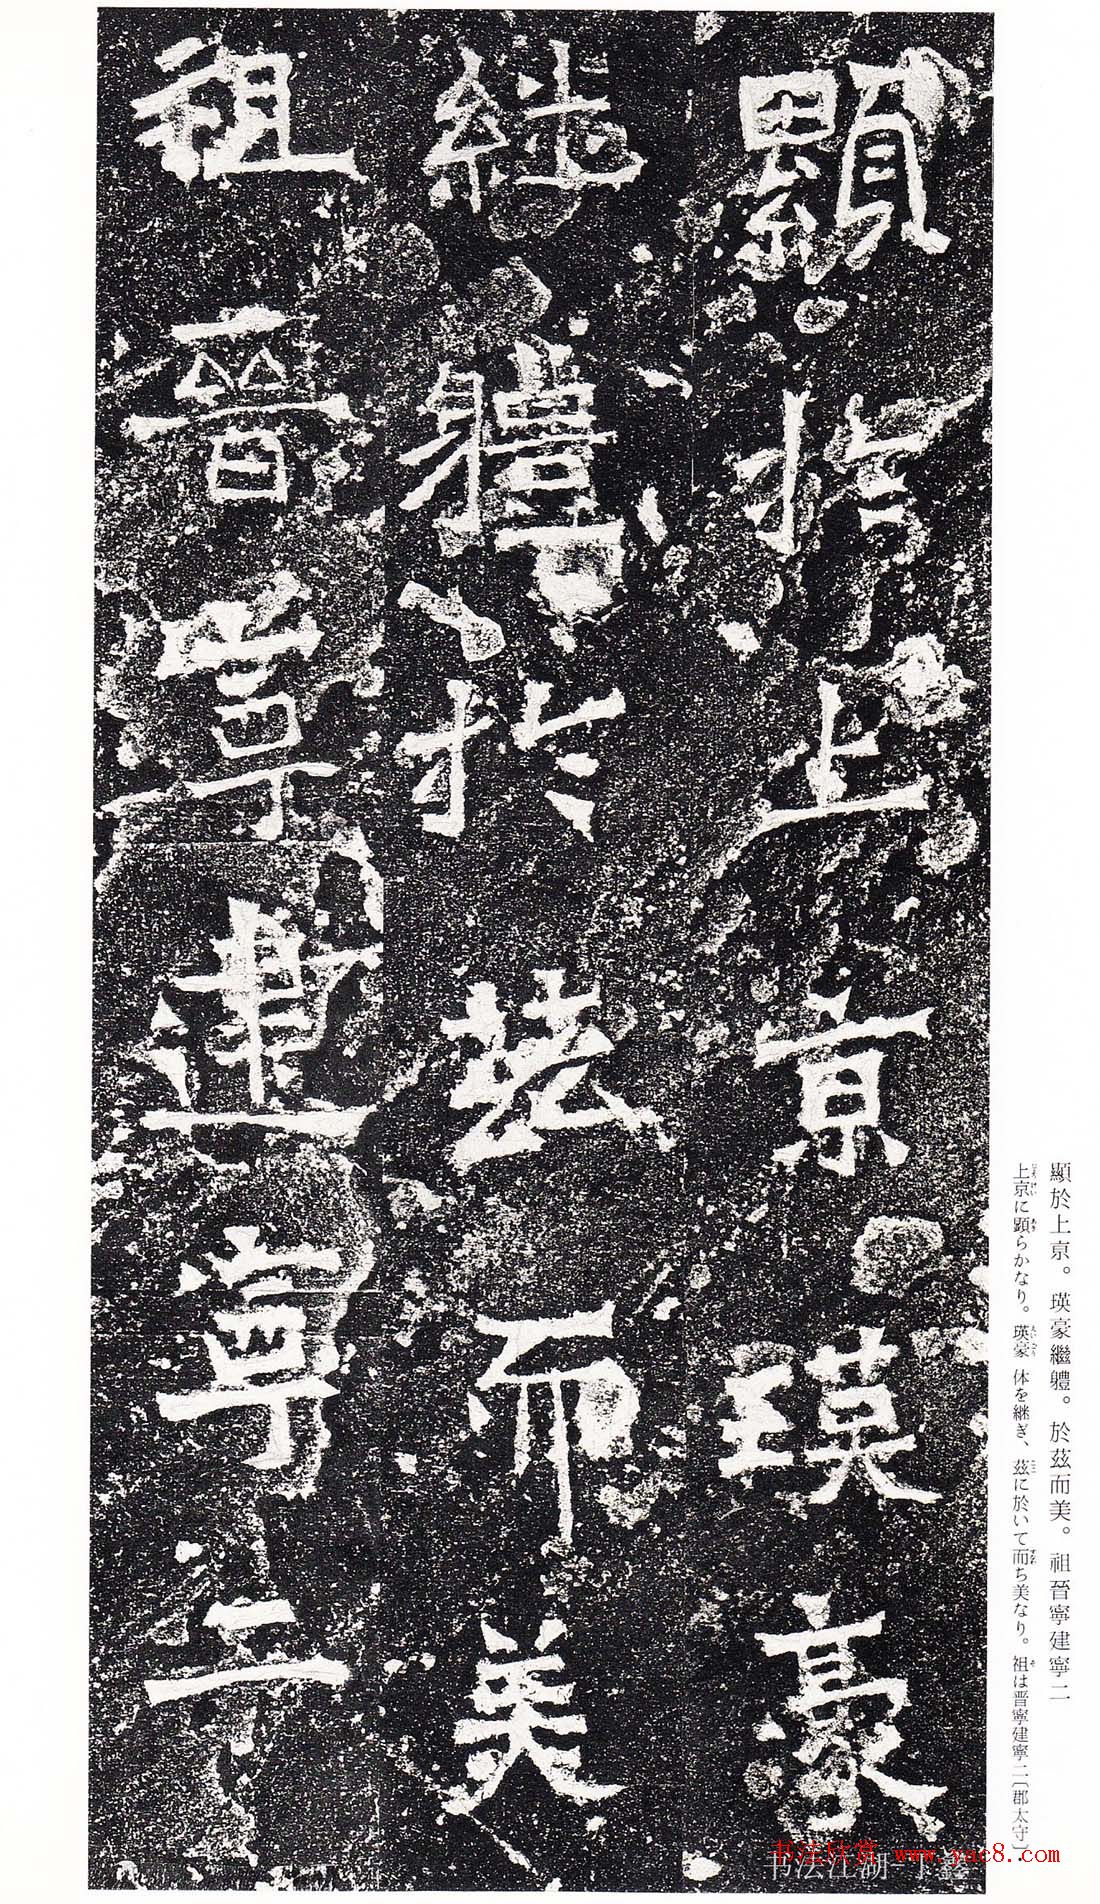 顯於上京瑛豪
繼軆於茲而美
祖晉寧建寧二
顯於上京。瑛豪繼軆。於茲而美。祖晉寧建寧二
上京に顕らかなり。瑛豪 体を継ぎ、茲に於いて而ち美なり。祖は晋寧建寧二〔郡太守〕
书法欣赏 www.yac8.com
书法江湖